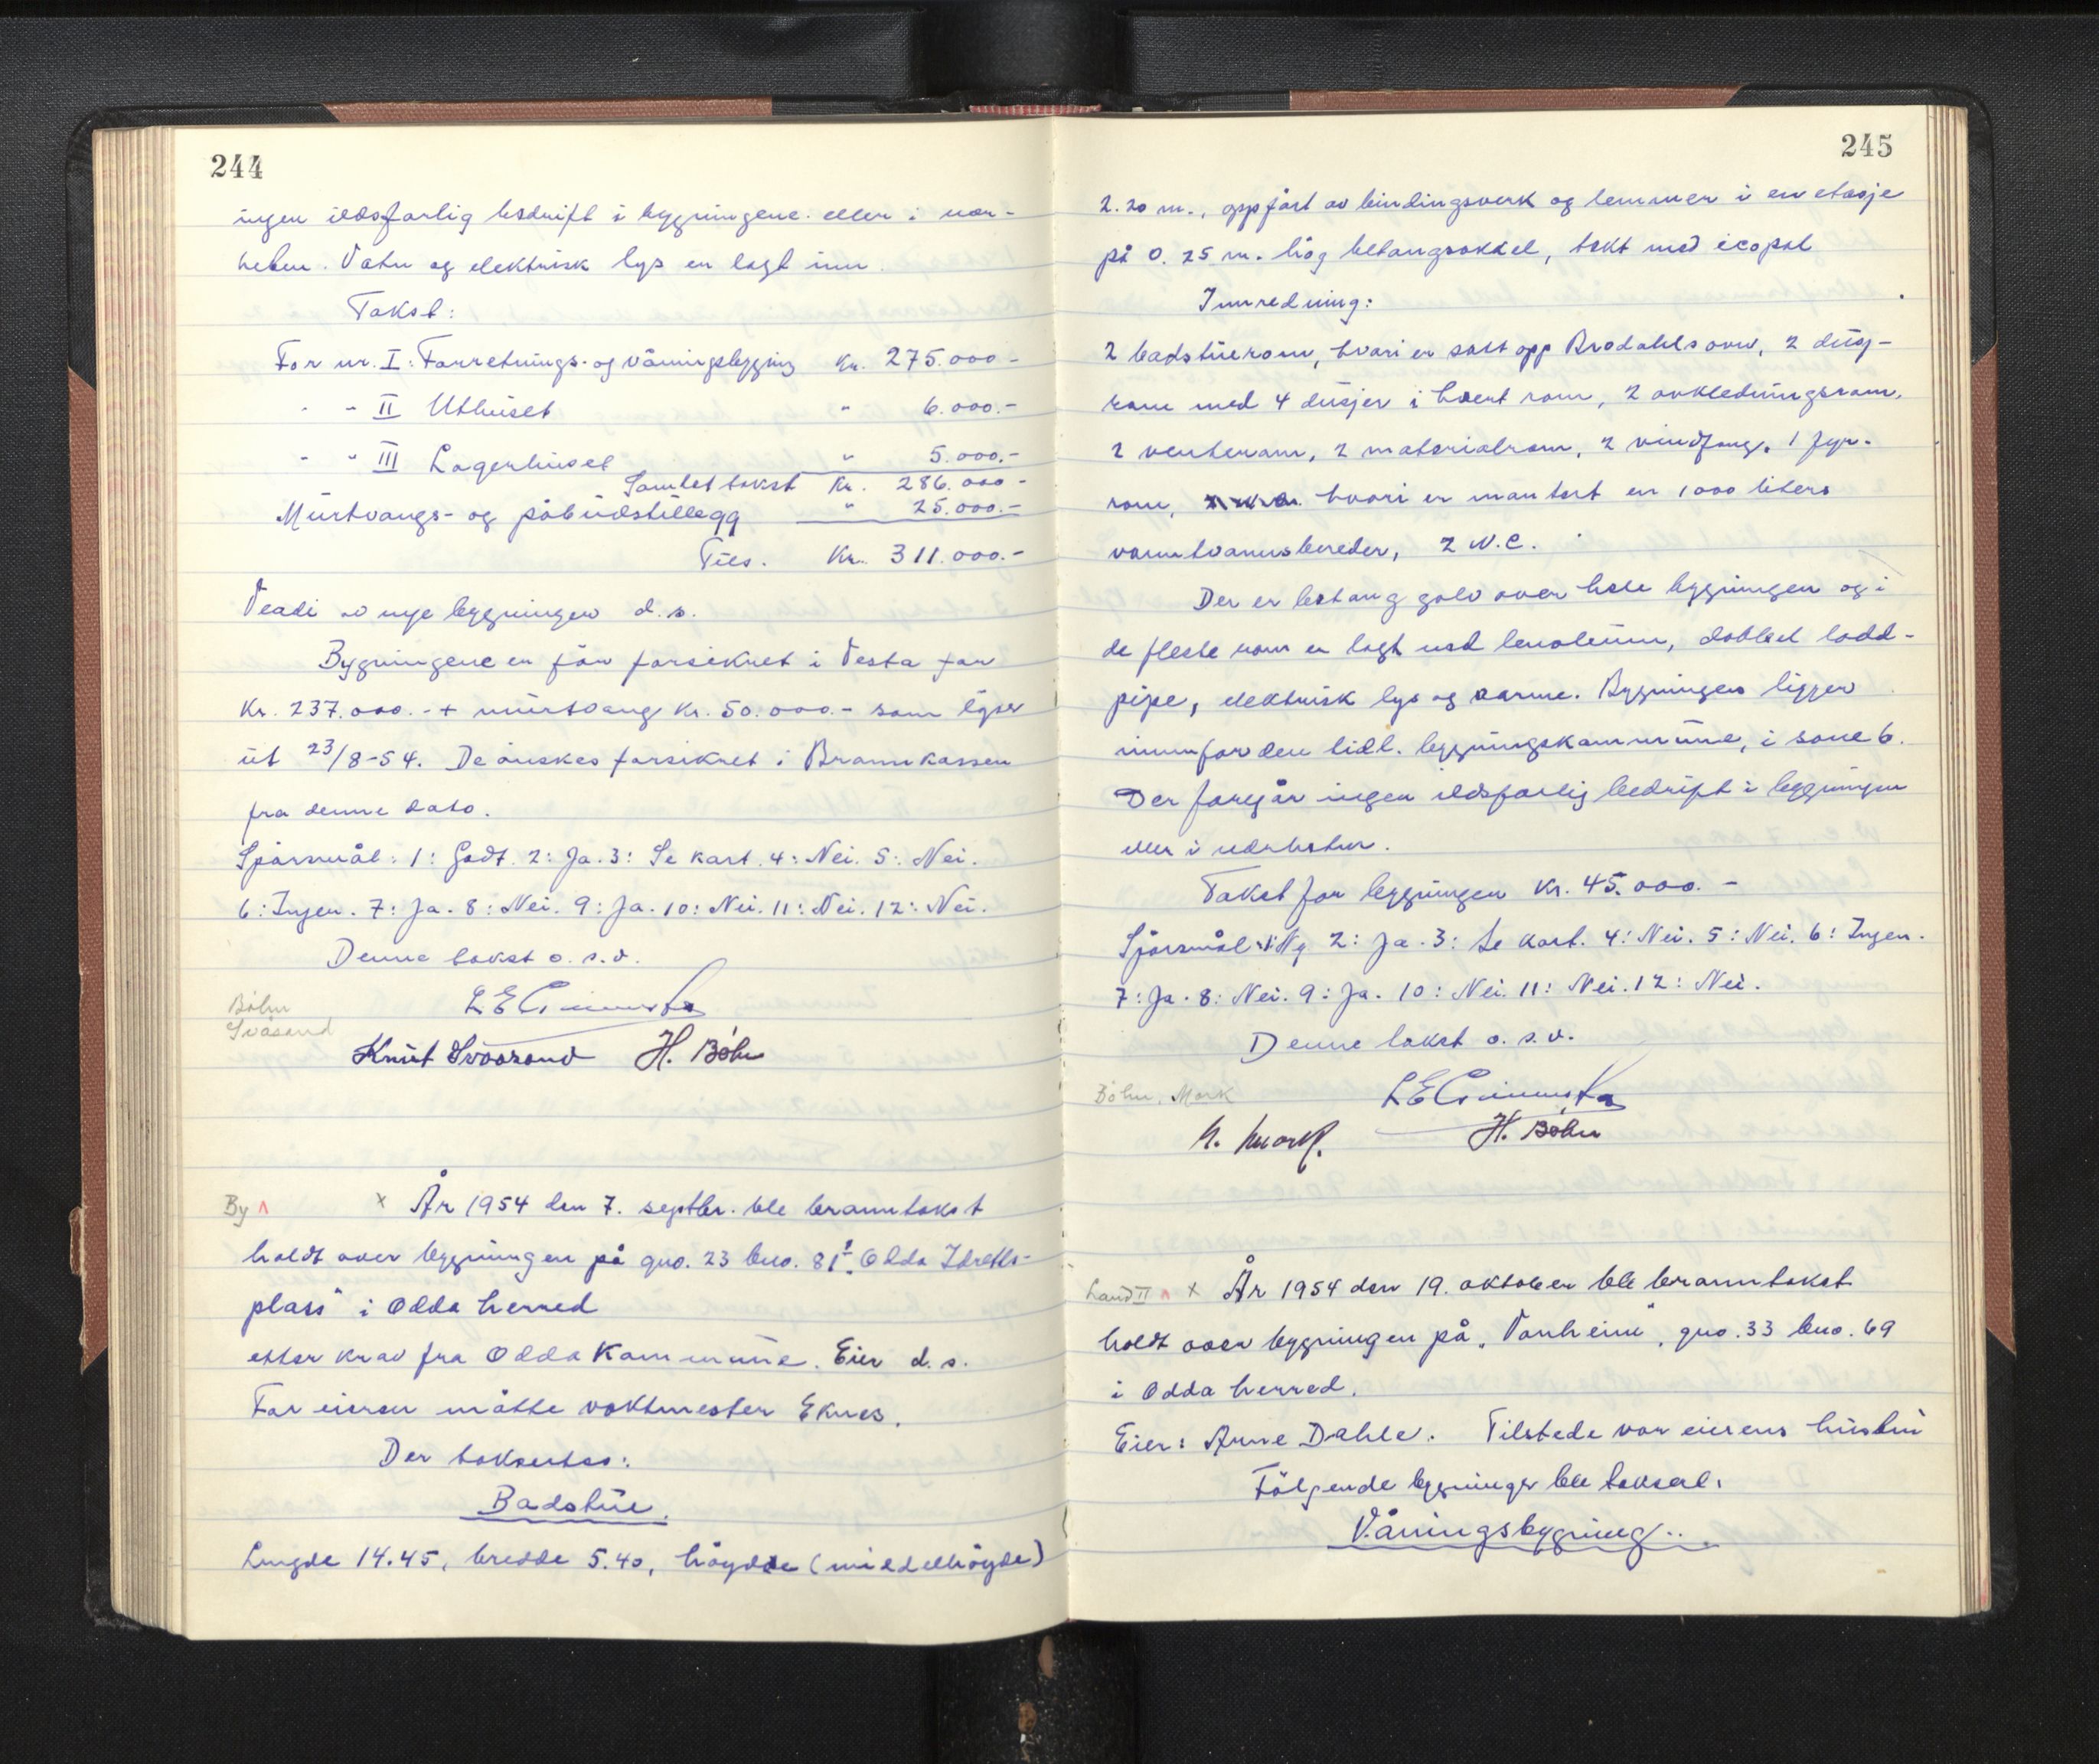 244
ingen ildsfarlig bedrift i bygningene eller i nær-
heten. Vatn og elektrisk lys er lagt inn.
Takst:
For nr. I: Forretnings- og våningsbygning kr. 275.000.-
" " II Uthuset " 6.000.-
" " III Lagerhuset " 5.000.-
Samlet takst kr. 286.000.-
Murtvangs- og påbudstillegg " 25.000.-
Tils. kr. 311.000.-
Verdi av nye bygninger d.s.
Bygningene er før forsikret i Vesta for
kr. 237.000.- + murtvang kr. 50.000.- som löper
ut 23/8-54. De ønskes forsikret i Brannkassen
fra denne dato.
Spörsmål: 1: Godt. 2: Ja. 3: Se kart. 4: Nei. 5: Nei.
6: Ingen. 7: Ja. 8: Nei. 9: Ja. 10: Nei. 11: Nei. 12: Nei.
Denne takst o.s.v.
Böhn
Svåsand
Knut Svåsand H. Böhn
By ^ x År 1954 den 7. septbr. ble branntakst
holdt over bygningen på gno. 23 bno. 81 "Odda Idretts-
plass" i Odda herred
etter krav fra Odda Kommune. Eier d.s.
For eieren måtte vaktmester Eknes.
Der taksertes:
Badstue.
Lengde 14.45, bredde 5.40, höyde (middelhöyde)
245
2.20 m., oppfört av bindingsverk og lemmer i en etasje
på 0.25 m. hög betongsokkel, tekt med icopal
Innredning:
2 badstuerom, hvori er satt opp Brodahls ovn, 2 dusj-
rom med 4 dusjer i hvert rom, 2 avkledningsrom,
2 venterom, 2 materialrom, 2 vindfang, 1 fyr-
rom, hvori er montert en 1000 liters
varmtvannsbereder, 2 W.C.
Der er betong golv over hele bygningen og i
de fleste rom er lagt med lenoleum, dobbel ladd-
pipe, elektrisk lys og varme. Bygningen ligger
innenfor den tidl. bygningskommune, i sone 6.
Der foregår ingen ildsfarlig bedrift i bygningen
eller i nærheten.
Takst for bygningen kr. 45.000.-
Spörsmål: 1: Ny 2: Ja. 3: Se kart. 4: Nei. 5: Nei. 6: Ingen.
7: Ja. 8: Nei. 9: Ja. 10: Nei. 11: Nei. 12: Nei.
Denne takst o.s.v.
Böhn, Mork
H. Böhn
Land II ^ x År 1954 den 19. oktober ble branntakst
holdt over bygningen på "Vonheim", gno. 33 bno. 69
i Odda herred.
Eier: Arne Dahle. Tilstede var eierens hustru
Fölgende bygninger ble taksert:
Våningsbygning.